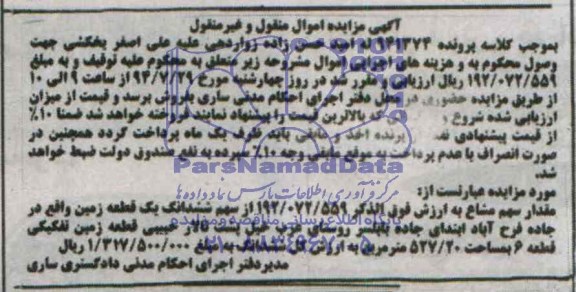 آگهی مزایده اموال منقول و غیرمنقول
بموجب کلاسه پرونده ۹۴۱۳۷۴ له امید حسن زاده زواردهی علیه علی اصغر یخکشی جهت
وصول محکوم به و هزینه های اجرایی اموال مشروحه زیر متعلق به محکوم علیه توقیف و به مبلغ
۱۹۲/۰۷۲/۵۵۹ ریال ارزیابی و مقرر شد در روز چهارشنبه مورخ ۹۴/۷/۲۹ از ساعت ۹ الی ۱۰
از طریق مزایده حضوری در محل دفتر اجرای احکام مدنی ساری بفروش برسد و قیمت از میزان
ارزیابی شده شروع و که بالاترین قیمت را پیشنهاد نمایند فروخته خواهد شد ضمنا ۱۰٪
از قیمت پیشنهادی نقدا برنده اخذ مابقی باید ظرف یک ماه پرداخت گردد همچنین در
صورت انصراف یا عدم پرداخت به موقع مابقی وجه ۱۰٪ سپرده به نفع صندوق دولت ضبط خواهد
شد.
ParsNamadData
مرکز فرآوری اطلاعات پارس نماد داده ها
مورد مزایده عبارتست از:
مقدار سهم مشاع به ارزش فوق الذکر ۱۹۲/۰۷۲/۵۵۹ از سهم ششدانگ یک قطعه زمین واقع در
پایگاه اطلاع رسانی مناقصه و مزایده
جاده فرح آباد ابتدای جاده بابلسر روستای قطعه زمین تفکیکی
قطعه ۶ بمساحت ۵۲۷/۲۰ مترمربع به ارزش کل ششدانگ به مبلغ ۱/۳۱۷/۵۰۰/۰۰۰ ریال
مدیردفتر اجرای احکام مدنی دادگستری ساری